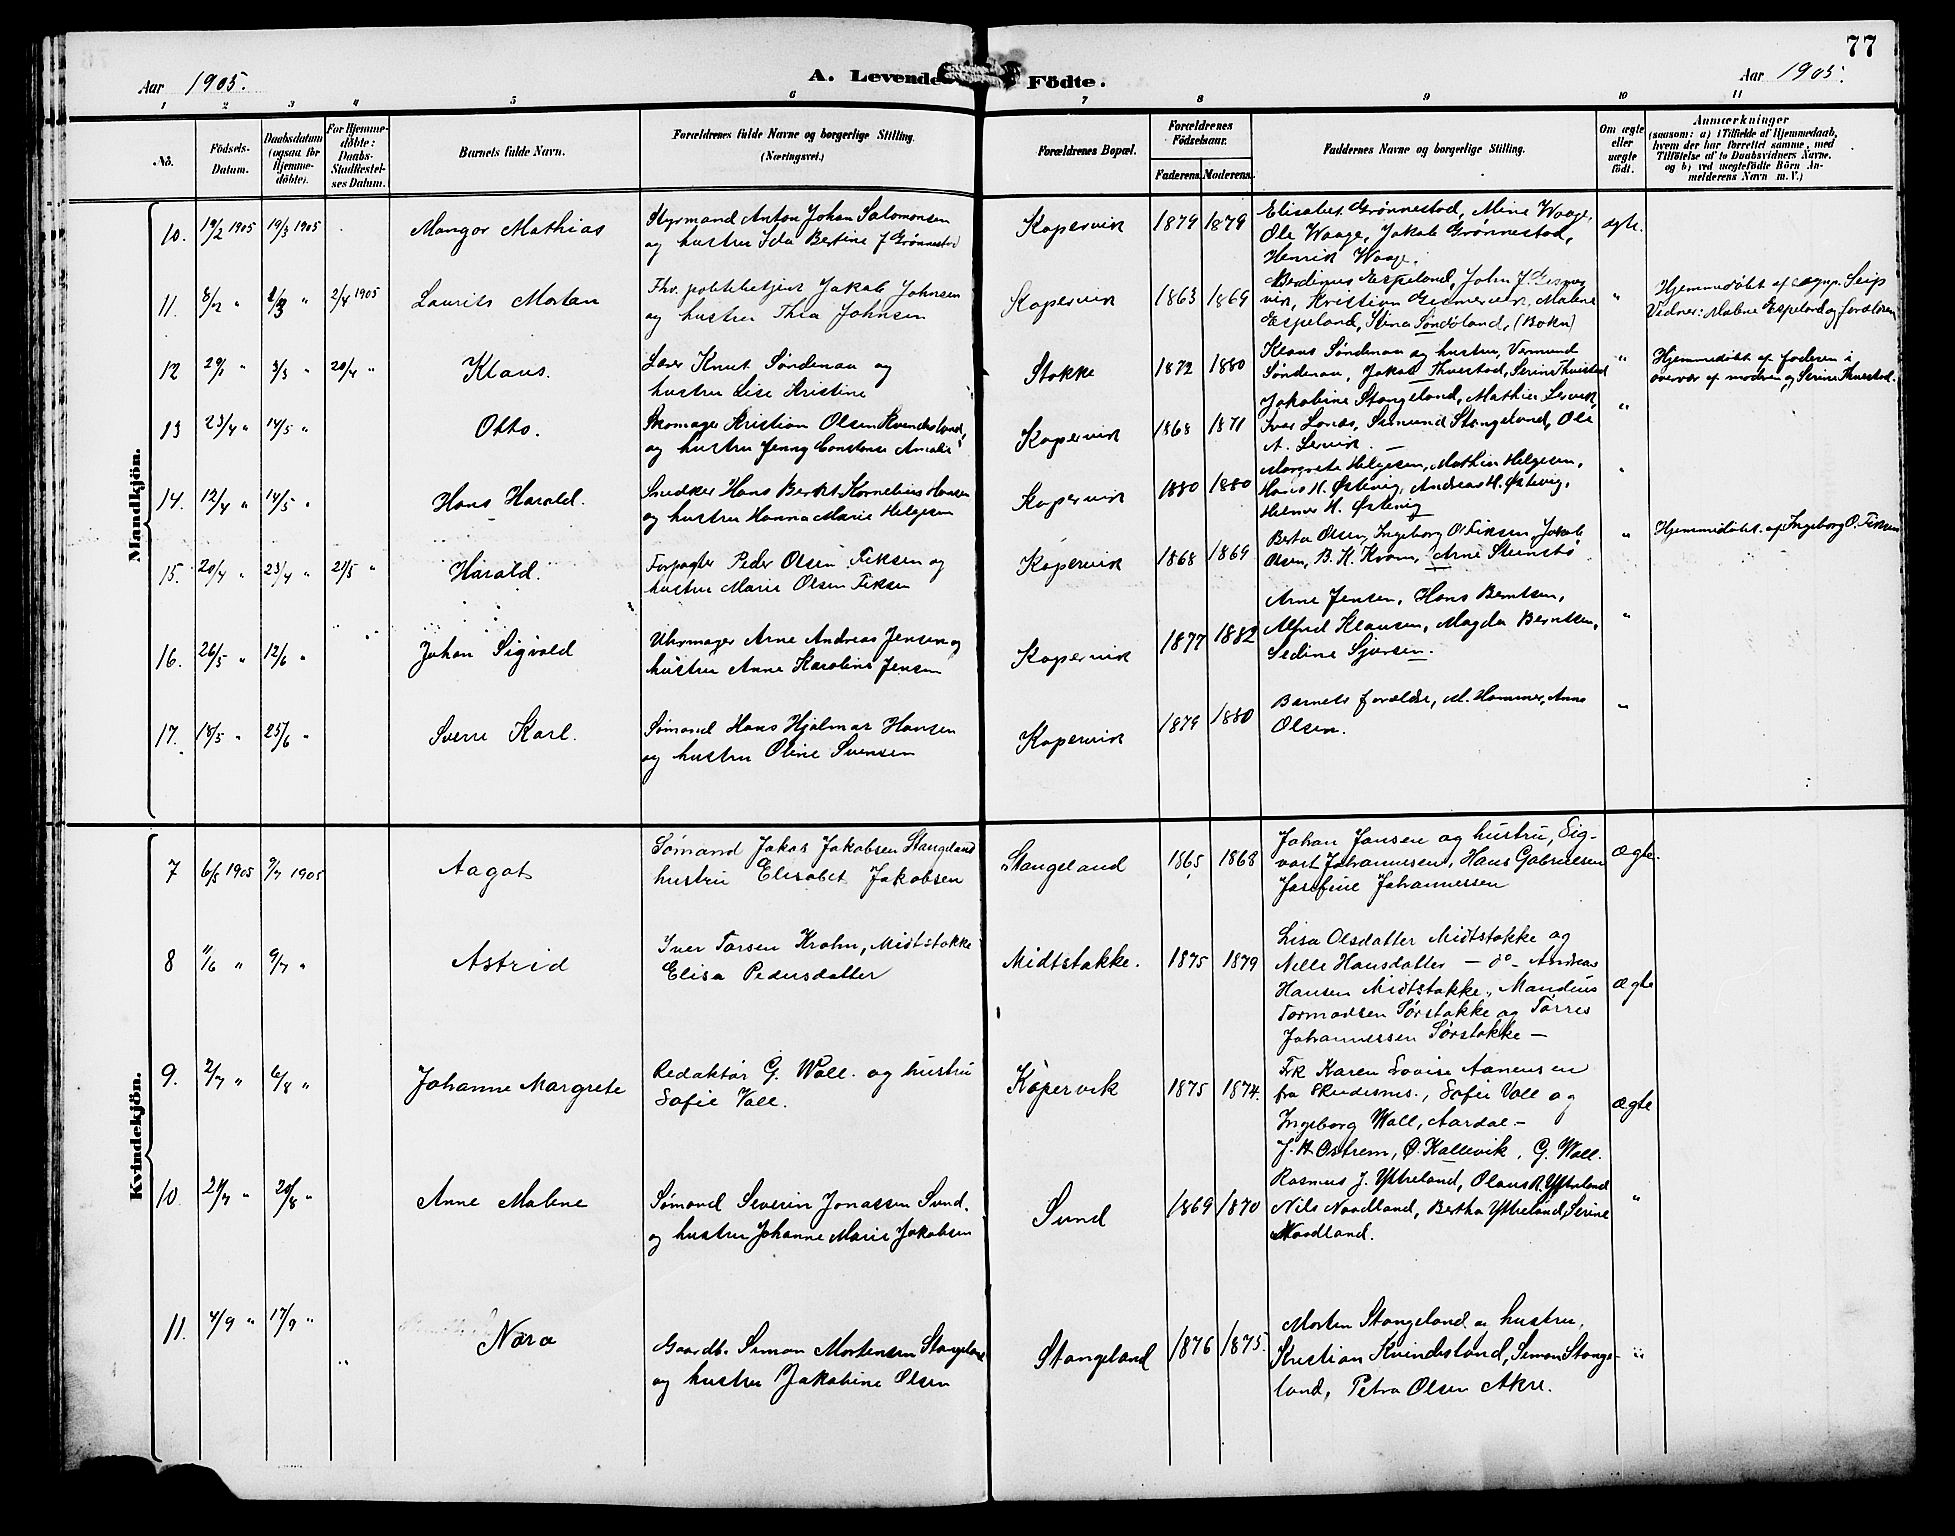 77
Aar 1905.
A. Levende Födte.
Aar 1905.
1 2 3 4 5 6 7 8 9 10 11
No.
Födsels-Datum.
Daabsdatum (ogsaa for Hjemme-döbte).
For Hjemme-döbte: Daabs-Stadfæstel-ses Datum.
Barnets fulde Navn.
Forældrenes fulde Navne og borgerlige Stilling.
(Næringsvei.)
Forældrenes Bopæl.
Forældrenes Födselsaar.
Faderens. Moderens.
Faddernes Navne og borgerlige Stilling.
Om ægte eller uægte födt.
Anmærkninger
(saasom: a) i Tilfælde af Hjemmedaab,
hvem der har forrettet samme, med
Tilföielse af to Daabsvidners Navne.
og b) ved uægtefödte Börn An-
melderens Navn m. V.)
Mandkjön.
10. 19/2 1905 19/3 1905 Mangor Mathias
Styrmand Anton Johan Salomonsen
og hustru Ida Bertine J Grønnestad
Kopervik 1879 1879
Elisabet Grønnestad, Mine Waage,
Ole Waage, Jakob Grønnestad,
Henrik Waage.
ægte.
11. 8/2 " 2/3 " 2/4 1905 Laurits Mortan
Fhv. politibetjent Jakob Johnsen
og hustru Thea Johnsen
Kopervik 1863 1869
Berdinus Espeland, John J
vik, Kristian Geismervik, Malene
Espeland, Stina Søndøland, (Bokn)
"
Hjemmedøbt af sognp. Seip
Vidner: Malene Espeland og forældrene
12 29/1 " 3/3 " 20/4 " Klaus.
Lærer Knut Søndenaa og
hustru Lise Kristine
Stokke 1872 1880
Klaus Søndenaa og hustru, Vermund
Søndenaa, Jakob Thuestad, Serine Thuestad
"
Hjemmedøbt af faderen i
overvær af modren og Serine Thuestad.
13 23/4 " 14/5 " Otto.
Skomager Kristian Olsen Kvindesland,
og hustru Jenny Constance Amalie
Kopervik 1868 1871
Jakobine Stangeland, Mathias Lervik,
Iver Lonæs, Simund Stangeland, Ole
A. Lervik. —
"
14. 12/4 " 14/5 " Hans Harald.
Snedker Hans Berket Kornelius Hansen
og hustru Hanna Marie Helgesen
Kopervik 1880 1880
Margrete Helgesen, Mathias Helgesen,
Hans H. Østevig, Andreas H. Østevig,
Helmer H. Østevig
"
15. 20/4 " 23/4 " 21/5 " Harald.
Forpagter Peder Olsen Feksen og
hustru Marie Olsen Feksen
Kopervik 1868 1869
Berta Olsen, Ingeborg O. Feksen, Jakob
Olsen, B. K. Kvam, Arne Steinstø
"
Hjemmedøbt af Ingeborg O. Feksen
16. 26/5 " 12/6 " Johan Sigvald
Uhrmager Arne Andreas Jensen og
hustru Anne Karoline Jensen
Kopervik 1877 1882
Arne Jensen, Hans Berntsen,
Alfred Klausen, Magda Berntsen,
Sedine Sjursen.
"
17. 18/5 " 25/6 " Sverre Karl.
Sømand Hans Hjalmar Hansen
og hustru Oline Svensen
Kopervik 1879 1880
Barnets forældre, M. Hammer, Anna
Olsen.
"
Kvindekjön.
7 6/5 1905 9/7 1905 Aagot
Sømand Jakob Jakobsen Stangeland
hustru Elisabet Jakobsen
Stangeland 1865 1868
Johan Jansen og hustru, Sig-
vart Johannesen, Hans Gabrielsen
Josefine Johannessen
Ægte.
8 11/6 " 9/7 " Astrid
Iver Torsen Krohn, Midtstokke
Elisa Pedersdatter
Midtstokke. 1875 1879
Lisa Olsdatter Midtstokke og
Nelle Hansdatter — do — Andreas
Hansen Midtstokke, Mandius
Tormodsen Sørstokke og Torres
Johannessen Sørstokke —
Ægte
9. 2/7 " 6/8 " Johanne Margrete
Redaktør G. Wall. og hustru
Sofie Vall.
Kopervik 1875 1874.
Frk Karen Lovise Aanensen
fra Skudesnes., Sofie Vall og
Ingeborg Wall, Aardal —
J. H. Ostrem, Ø. Kallevik, G. Wall.
Ægte
10. 21/7 " 20/8 " Anne Malene
Sømand Severin Jonassen Sund.
og hustru Johanne Marie Jakobsen
Sund 1869 1870
Rasmus J. Ytreland, Olaus R. Ytreland
Nils Nordland, Bertha Ytreland, Serine
Nordland.
"
11. 4/9 " 17/9 " Nora
Gaardb. Simon Mortensen Stangeland
og hustru Jakobine Olsen
Stangeland 1876 1875.
Morten Stangeland og hustru,
Kristian Kvindesland, Simon Stange-
land, Petra Olsen Akre.
"